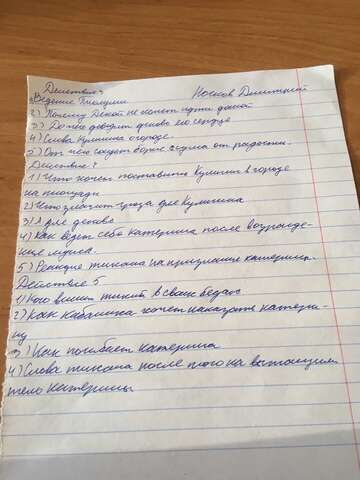 Действие 3 Носков Дмитрий
1) Видение Феклуши
2) Почему Дикой не хочет идти домой
3) До чего доводит Дикого его сердце
4) Слова Кулигина о городе.
5) От чего сойдёт Борис с ума от радости.
Действие 4
1) Что хочет поставить Кулигин в городе
на площади
2) Что значит гроза для Кулигина
3) А для Дикого
4) Как ведет себя Катерина после
ние мужа.
5) Реакция Тихона на признание Катерины.
Действие 5
1) Кого винит Тихон в своих бедах
2) Как Кабаниха хочет наказать Катери-
ну
3) Как погибает Катерина
4) Слова Тихона после того как вытащили
тело Катерины